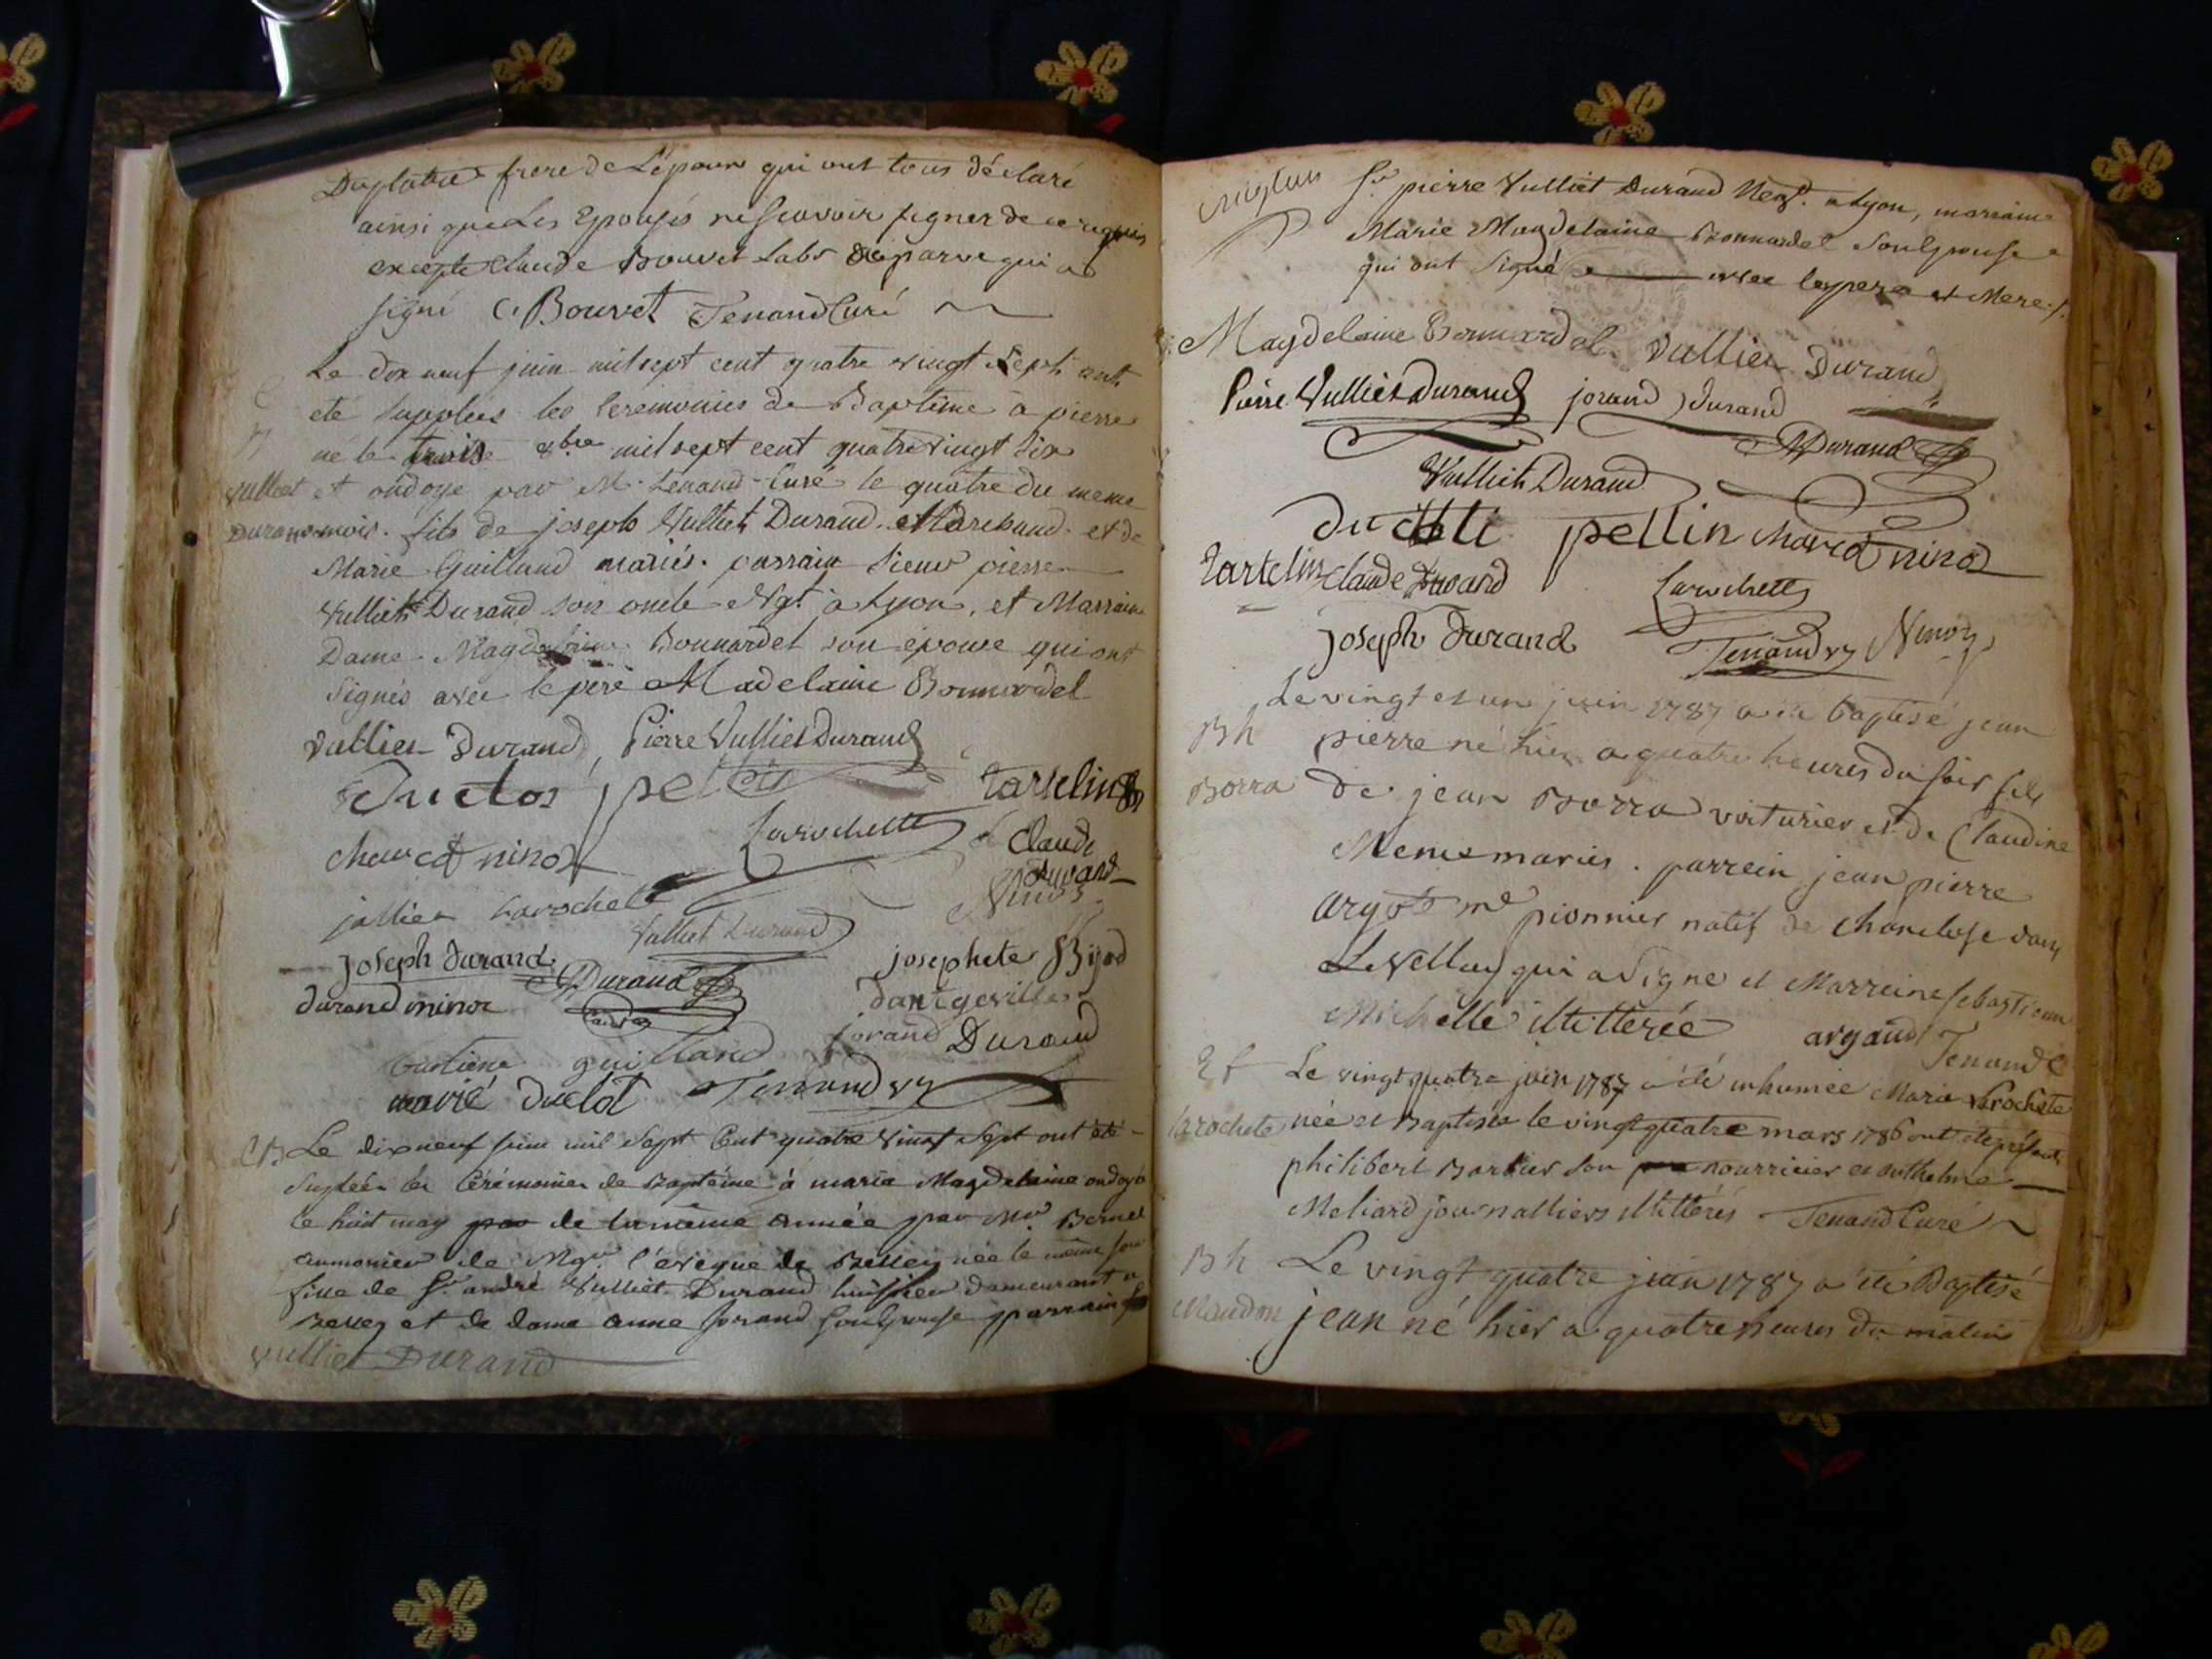 Duplatre frere de L'époux qui ont tous déclaré
ainsi que Les Epousés ne scavoir signer de ce requis
excepté Claude Bouvet Labs qui a
signé C. Bouvet Tenand Curé
Le dix neuf juin mil sept cent quatre vingt sept ont
eté supplées les Ceremonies de Baptême à pierre
né le trois 8bre mil sept cent quatre vingt six
Vulliet et ondoye par M. Tenand Curé le quatre du meme
Durand mois. fils de joseph Vulliet Durand Marchand et de
Marie Guilland mariés. parrain Sieur pierre
Vulliet Durand son oncle Ngt. à Lyon, et Marraine
Dame Magdelaine Bonnardel son épouse qui ont
signés avec le pere Madelaine Bonnardel
Vulliet Durand Pierre Vulliet Durand
Duclos pellin tartelin
Larochette Claude Durand
jullien Larochette Ninoz
Vulliet Durand
Joseph Durand Durand josephete Bijod
durand minor dangeville
jorand Durand
guilland
marie duclot Tenand
CB Le dix neuf juin mil sept Cent quatre vingt sept ont été
suplées les Cérémonies de Baptême à marie Magdelaine ondoyée
le huit may par de la même année par Mr Bernet
aumonier de Mgr. l'évêque de Belley née le même jour
fille de Sr. andré Vulliet Durand huissier demeurant a
Belley et de dame anne jorand son Epouse parrain
Vulliet Durand
Sr pierre Vulliet Durand Negt. a Lyon, maraine
Marie Magdelaine Bonnardel son Epouse
qui ont signé avec les pere et Mere.
Magdelaine Bonnardel Vulliet Durand
Pierre Vulliet Durand jorand Durand
Durand
Vulliet Durand
pellin
tartelin Claude Durand Larochette
Joseph Durand Tenand Ninoz
Le vingt et un juin 1787 a été baptisé jean
Bh pierre né hier a quatre heures du soir fils
Borra de jean Borra voiturier et de Claudine
mariés. parrein jean pierre
pionnier natif de dans
Le Vellay qui a signé et Marreine sebastienne
Michelle illitterée argaud Tenand C
Ef Le vingt quatre juin 1787 a été inhumée Marie Larochete
Larochete née et Baptisée le vingt quatre mars 1786 ont eté présents
philibert Barbier son nourricier et anthelme
Meliard journalliers illittérés Tenand Curé
Bh Le vingt quatre juin 1787 a été Baptisé
jean né hier a quatre heures du matin